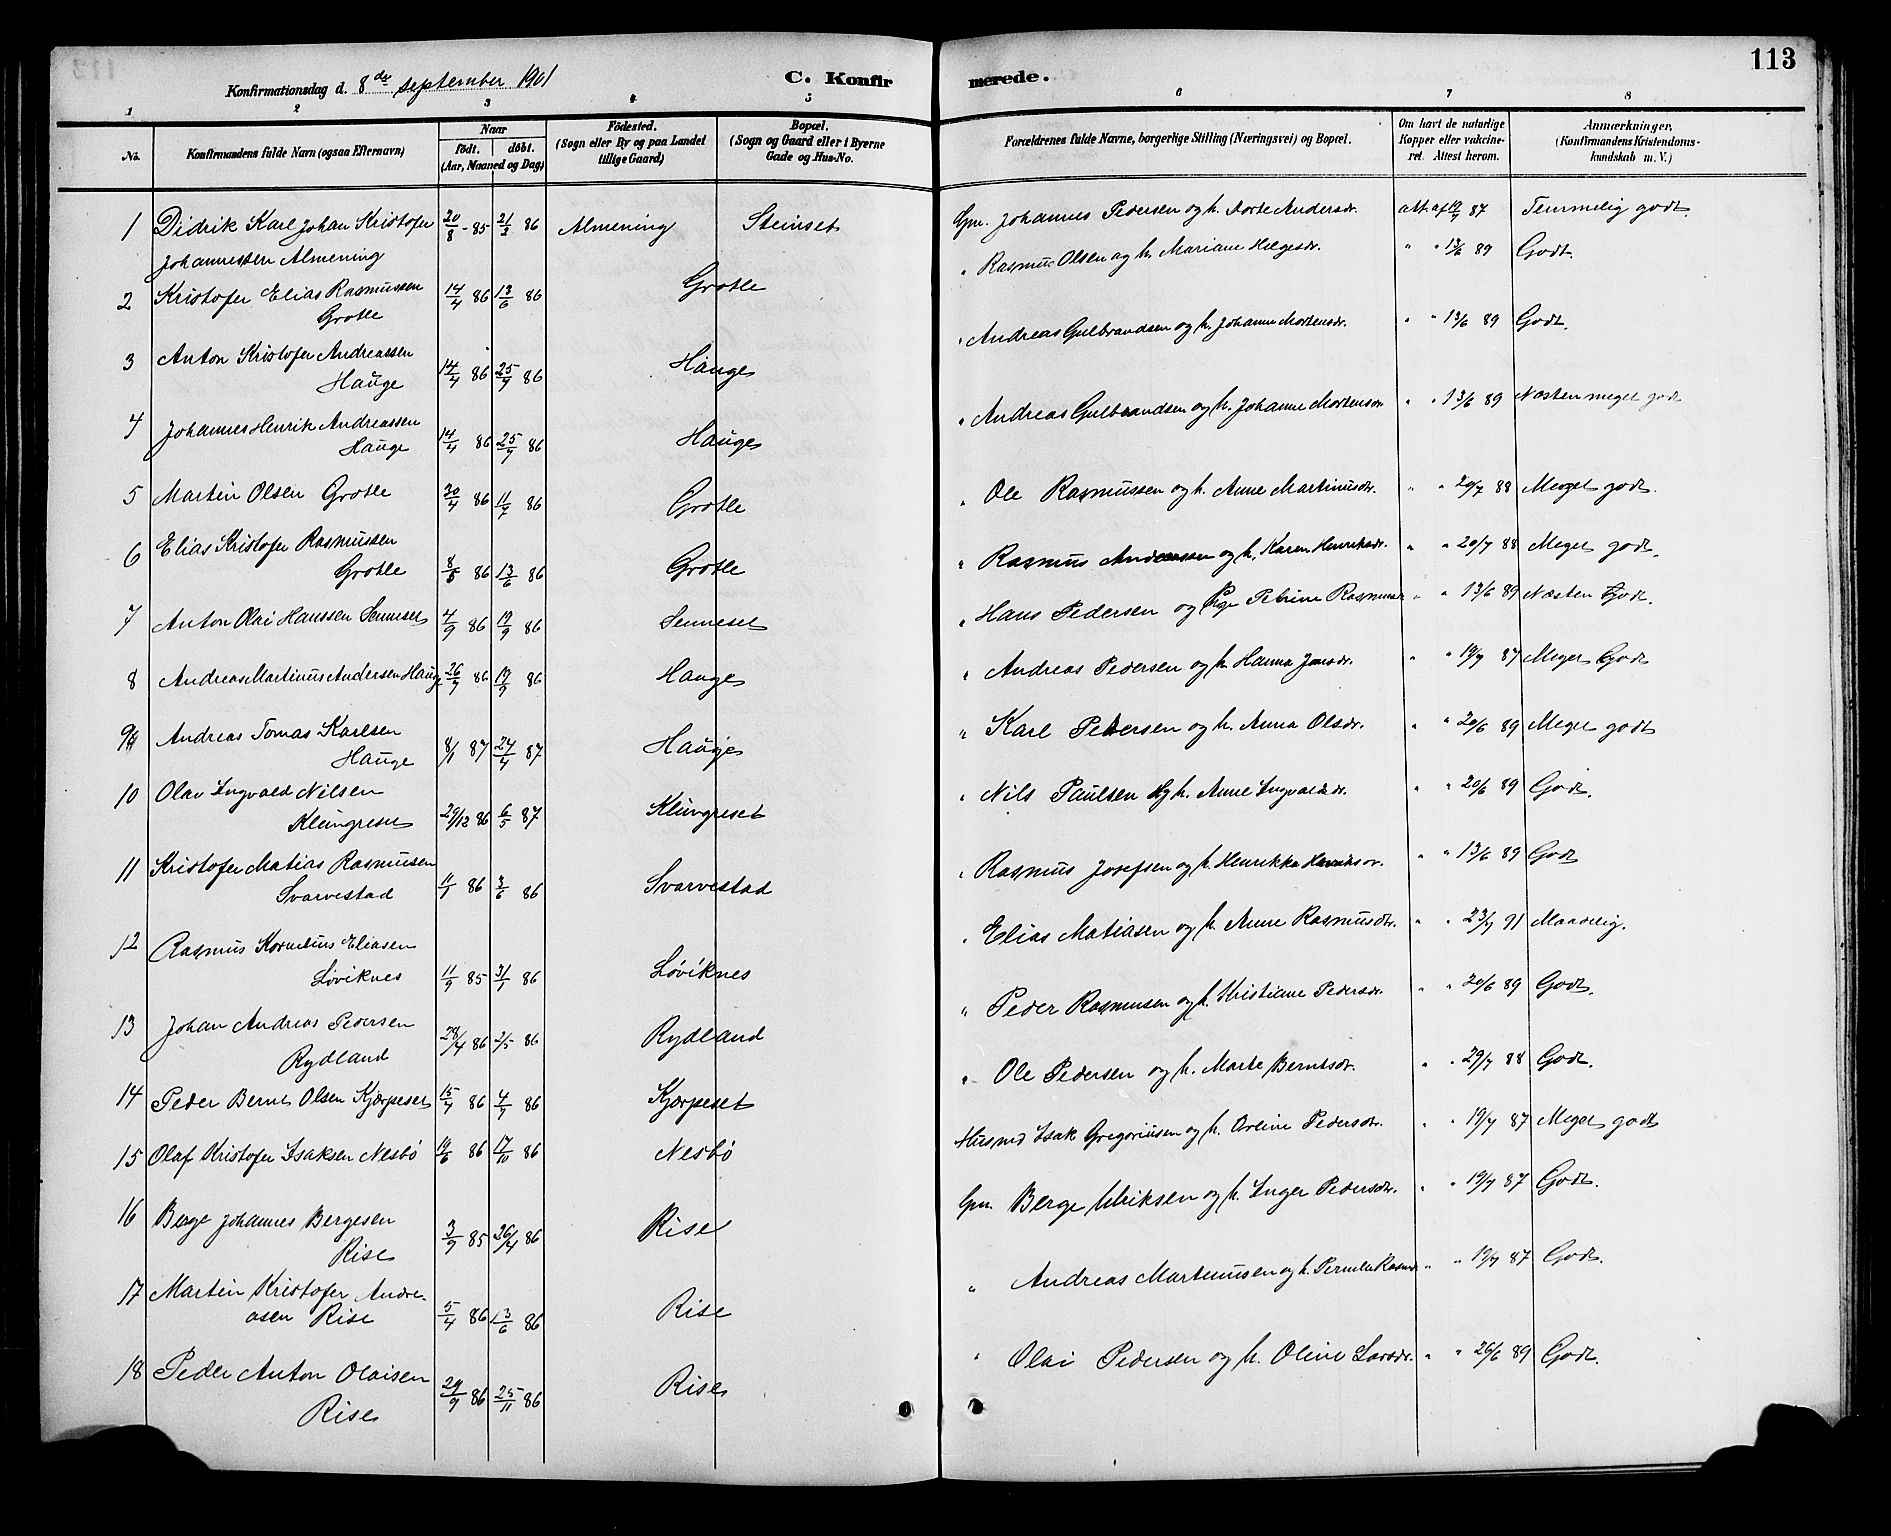 113
Konfirmationsdag d. 8de september 1901
C. Konfirmerede.
1 2 3 4 5 6 7 8
No.
Konfirmandens fulde Navn (ogsaa Efternavn)
Naar
födt. döbt.
(Aar, Maaned og Dag)
Födested.
(Sogn eller By og paa Landet
tillige Gaard)
Bopæl.
(Sogn og Gaard eller i Byerne
Gade og Hus-No.
Forældrenes fulde Navne, borgerlige Stilling (Næringsvei) og Bopæl.
Om havt de naturlige
Kopper eller vakcine-
ret. Attest herom.
Anmærkninger.
(Konfirmandens Kristendoms-
kundskab m. V.)
1 Didrik Karl Johan Kristofer 20/8 - 85 21/2 86 Almening Steinset Gm. Johannes Pedersen og h. Dorte Andersdr. att. af 12/7 87 Temmelig godt.
Johannessen Almening
2 Kristofer Elias Rasmussen 14/4 86 13/6 86 Grotle " Rasmus Olsen og h. Mariane Helgesdr. " " 13/6 89 Godt.
Grotle
3 Anton Kristofer Andreassen 14/4 86 25/7 86 Hauge " Andreas Gulbrandsen og h. Johanne Mortensdr. " " 13/6 89 Godt.
Hauge
4 Johannes Henrik Andreassen 14/4 86 25/7 86 Hauge " Andreas Gulbrandsen og h. Johanne Mortensdr " " 13/6 89 Næsten meget godt
Hauge
5 Martin Olsen Grotle 30/4 86 11/7 86 Grotle " Ole Rasmussen og h. Anne Martinusdr. " " 20/7 88 Meget godt.
6 Elias Kristofer Rasmussen 8/5 86 13/6 86 Grotle " Rasmus Anderssen og h. Karen Henriksdr. " " 20/7 88 Meget godt.
Grotle
7 Anton Olai Hanssen Senneset 4/9 86 19/9 86 Senneset " Hans Pedersen og Pige Petrine Rasmusdr " " 13/6 89 Næsten Godt.
8 Andreas Martinus Andersen Hauge 26/7 86 19/9 86 Hauge " Andreas Pedersen og h. Hanna Jonsdr. " " 19/7 87 Meget Godt
9 Andreas Tomas Karlsen 8/1 87 24/4 87 Hauge " Karl Petersen og h. Anna Olsdr. " " 20/6 89 Meget godt
Hauge
10 Olav Ingvald Nilsen 29/12 86 6/5 87 Klungreset " Nils Paulsen og h. Anne Ingvaldsdr. " " 20/6 89 Godt.
Klungreset
11 Kristofer Matias Rasmussen 11/1 86 3/6 86 Svarvestad " Rasmus Josefsen og h. Henrikka Henriksdr. " " 13/6 89 Godt
Svarvestad
12 Rasmus Kornelius Eliasen 11/9 85 31/1 86 Løviknes " Elias Matiasen og h. Anne Rasmusdtr. " " 23/7 91 Maadelig.
Løviknes
13 Johan Andreas Pedersen 28/4 86 2/5 86 Rydland " Peder Rasmusen og h. Kristiane Pedersdr. " " 20/6 89 Godt.
Rydland
14 Peder Bernt Olsen Kjørpeset 15/4 86 4/7 86 Kjørpeset " Ole Pedersen og h. Marte Berntsdr. " " 29/7 88 Godt.
15 Olaf Kristofer Isaksen Nesbø 14/6 86 17/10 86 Nesbø Husmd Isak Gregoriusen og h. Orline Pedersdtr. " " 19/7 87 Meget godt
16 Berge Johannes Bergesen 3/9 85 26/4 86 Rise Gm. Berge Ulriksen og h. Inger Pedersdtr. " " 19/7 87 Godt.
Rise
17 Martin Kristofer Andre- 5/4 86 13/6 86 Rise " Andreas Martinusen og h. Pernille Rasmdr " " 19/7 87 Godt.
asen Rise
18 Peder Anton Olaisen 24/9 86 25/11 86 Rise " Olai Pedersen og h. Oline Larsdr. " " 26/6 89 Godt.
Rise